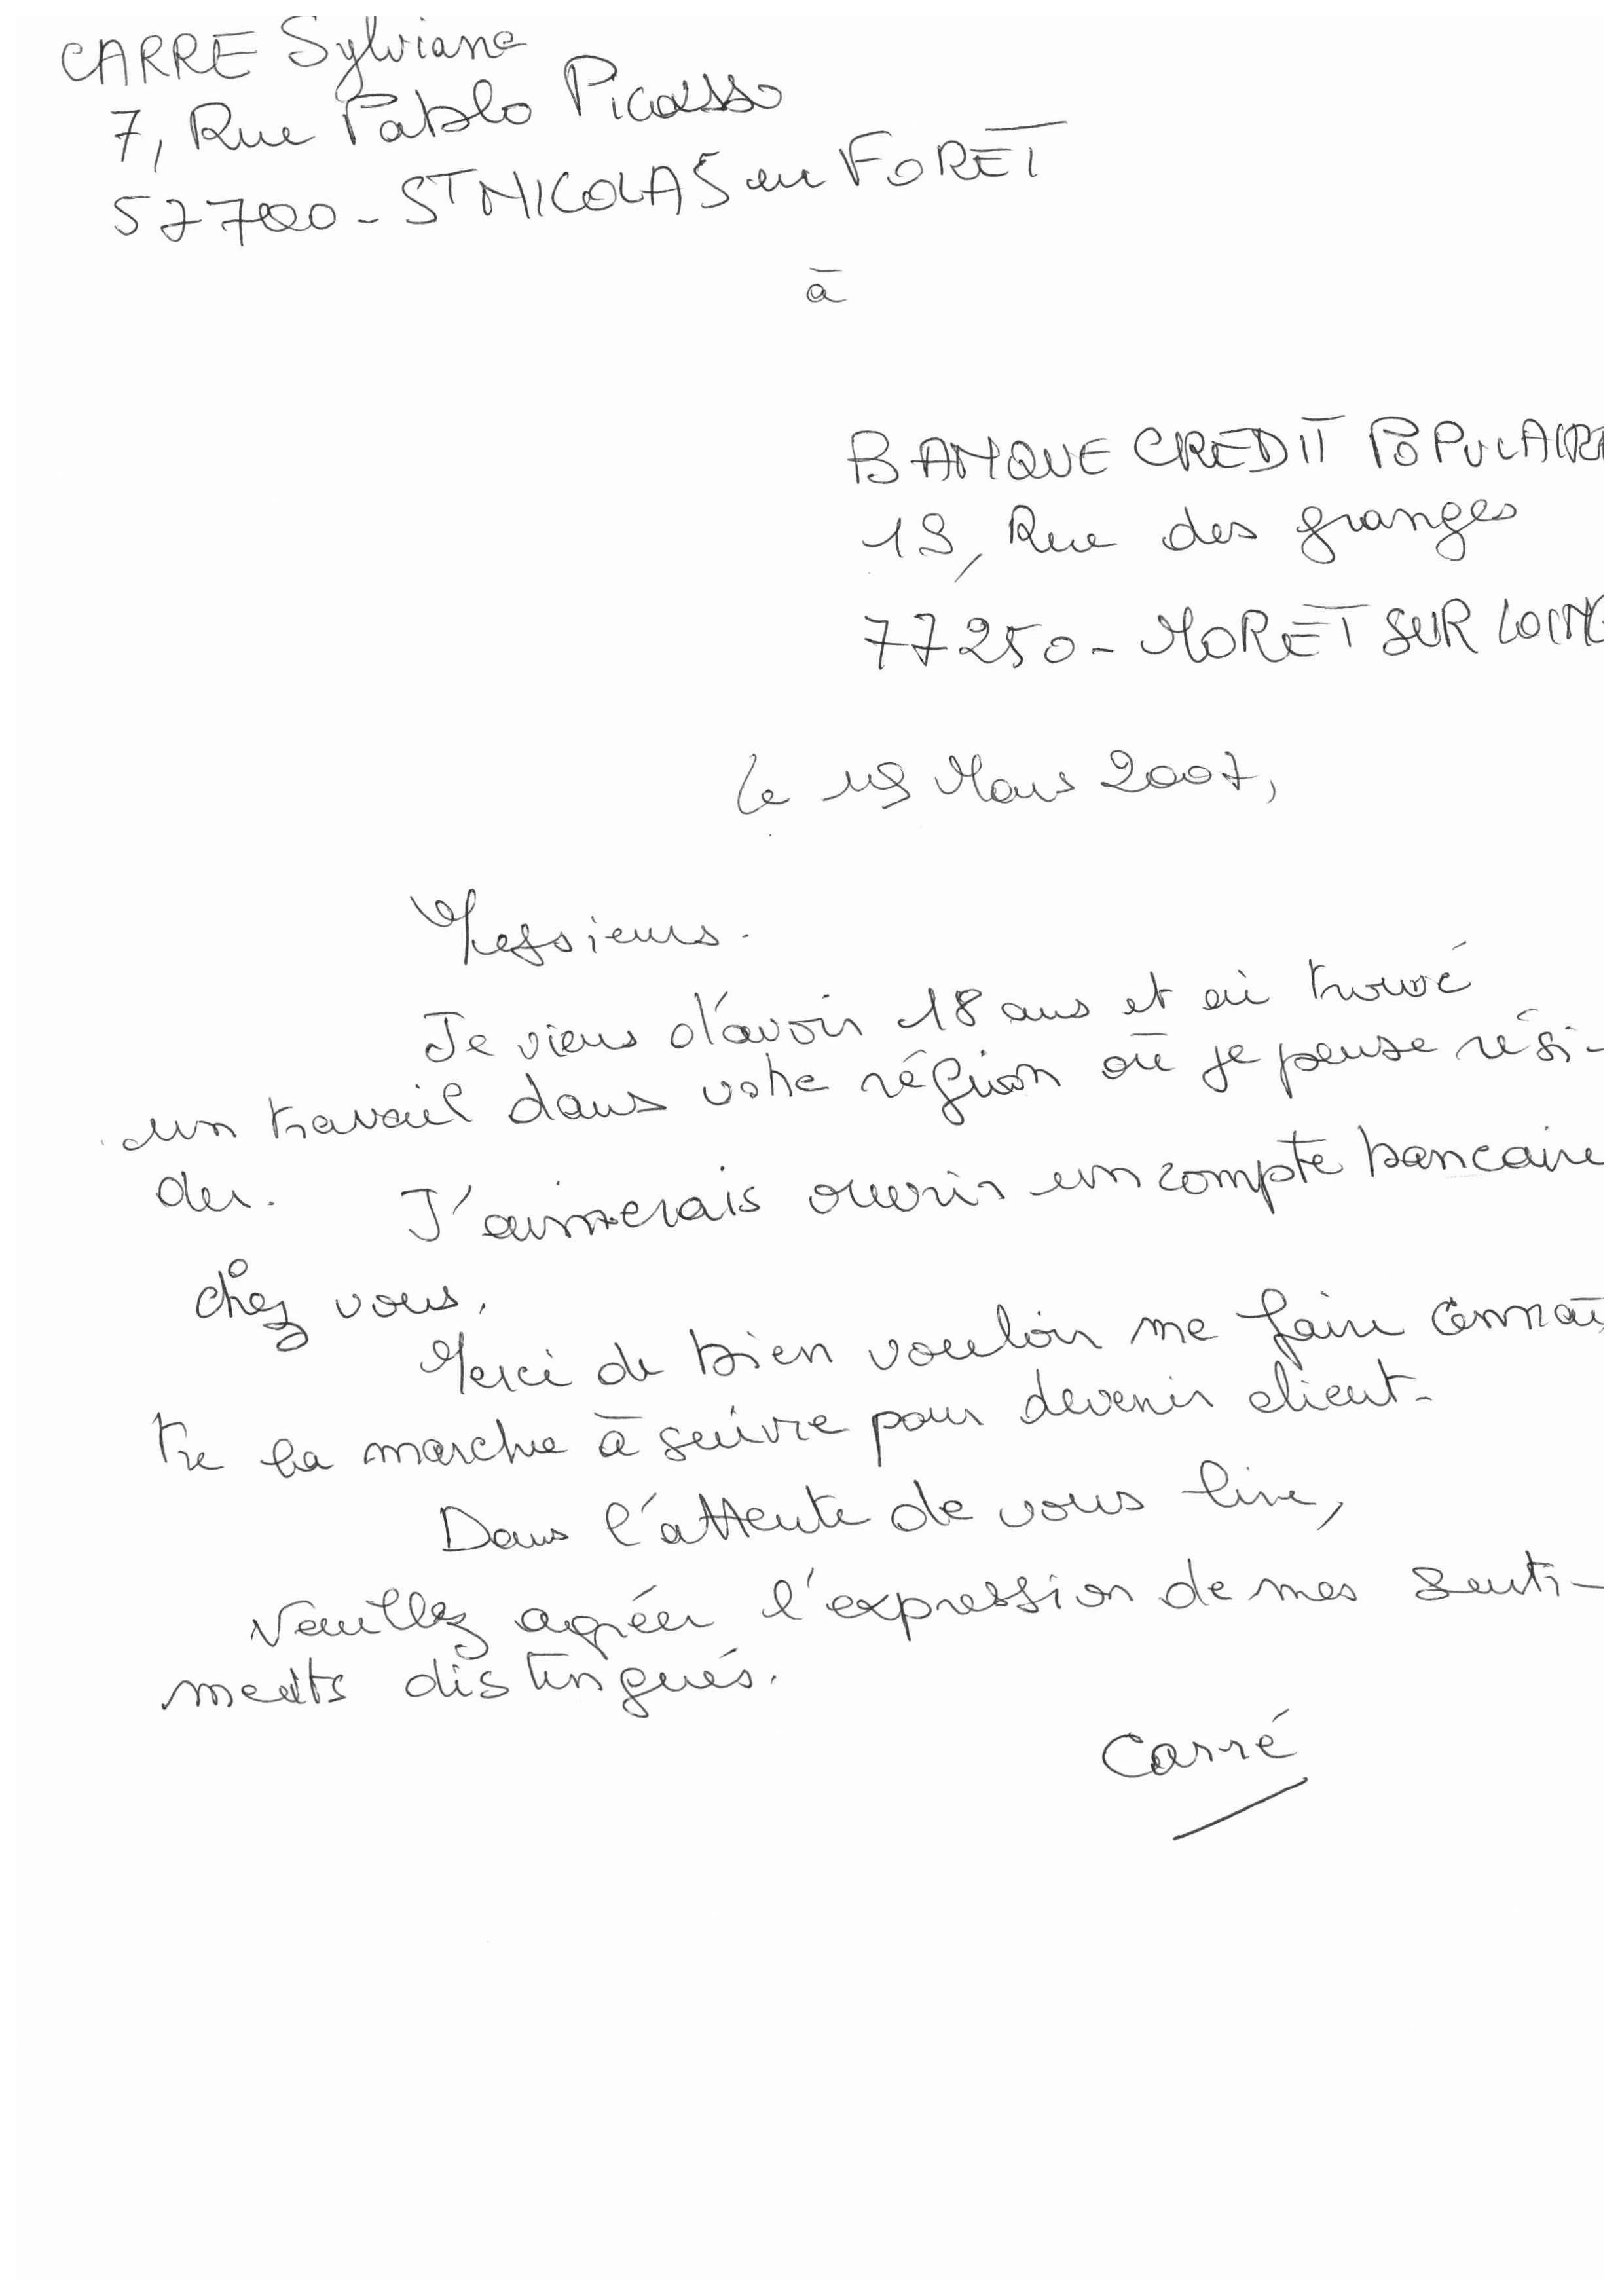 CARRE Sylviane
7, Rue Pablo Picasso
57700 - ST NICOLAS en FORET
à
BANQUE CREDIT POPULAIRE
19, Rue des granges
77250 - MORET SUR LOING
le 19 Mars 2007,
Messieurs.
Je viens d'avoir 18 ans et ai trouvé
un travail dans votre région où je pense rési-
der. J'aimerais ouvrir un compte bancaire
chez vous.
Merci de bien vouloir me faire connaî
tre la marche à suivre pour devenir client.
Dans l'attente de vous lire,
Veuillez agréer l'expression de mes senti-
ments distingués.
Carré